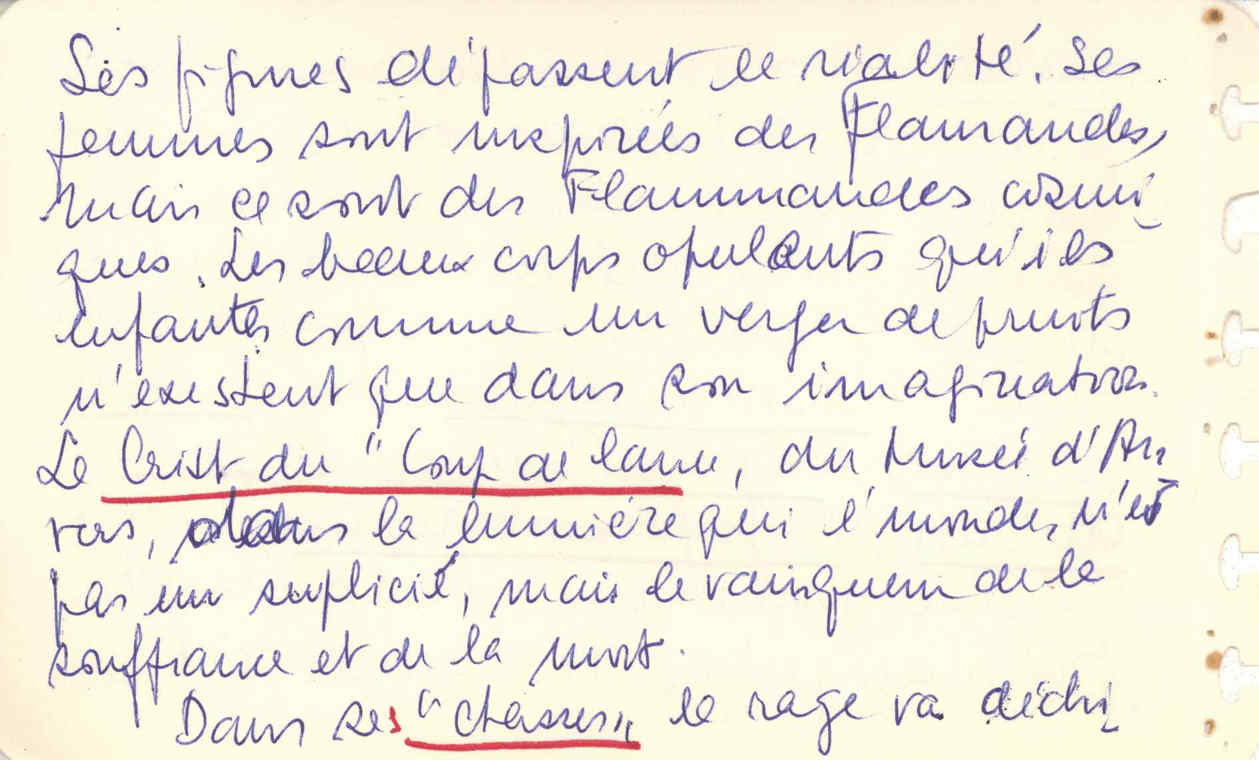 Ses figures dépassent la réalité. Ses
femmes sont inspirées des Flamandes,
mais ce sont des Flammandes cosmi-
ques. Les beaux corps opulents qu'ils
enfantes comme un verger de fruits
n'existent que dans son imagination.
Le Crist du "Coup de lance, du Musée d'An-
vers, dans la lumière qui l'inonde, n'est
pas un suplicié, mais le vainqueur de la
souffrance et de la mort.
Dans ses "Chasses„ la rage va déchi-